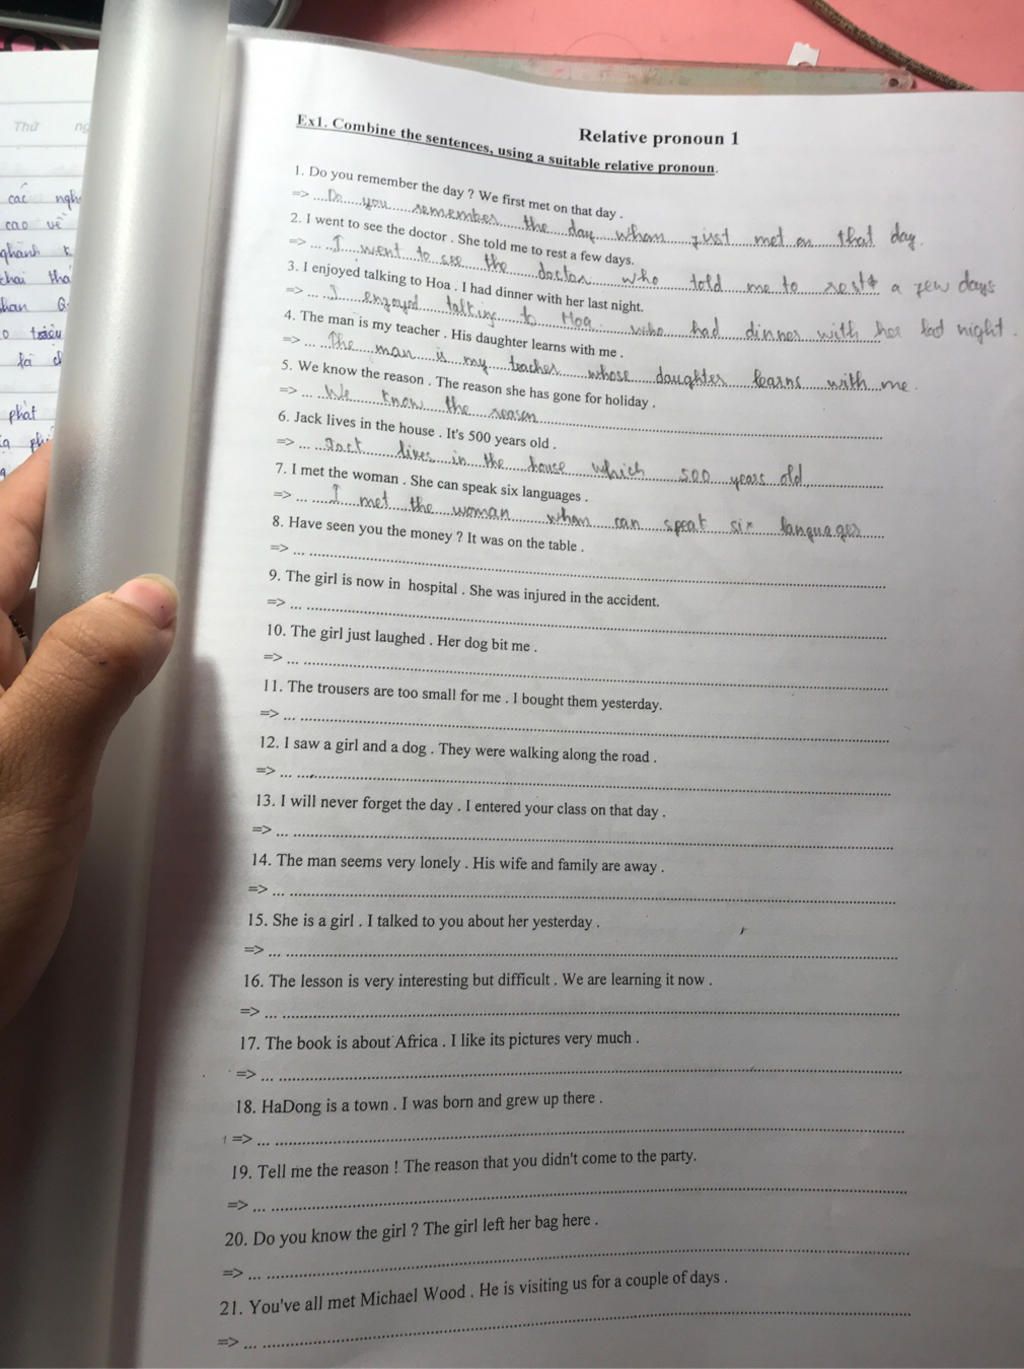 Thứ
ng
các ngh
cao về
nghành k
khai thá
phát
Relative pronoun 1
Ex1. Combine the sentences, using a suitable relative pronoun.
1. Do you remember the day ? We first met on that day .
=> ....Do you remember the day whom first met on that day.
2. I went to see the doctor . She told me to rest a few days.
=> ... ...I went to see the doctor who told me to rest a few days
3. I enjoyed talking to Hoa . I had dinner with her last night.
=> ... ...I enjoyed talking to Hoa who had dinner with her last night.
4. The man is my teacher . His daughter learns with me .
=> ... ...The man is my teacher whose daughter learns with me.
5. We know the reason . The reason she has gone for holiday .
=> ... ...We know the reason
6. Jack lives in the house . It's 500 years old .
=> ... ...Jack lives in the house which 500 years old,
7. I met the woman . She can speak six languages .
=> ... ...I met the woman whom can speak six languages
8. Have seen you the money ? It was on the table .
=> ...
9. The girl is now in hospital . She was injured in the accident.
=> ...
10. The girl just laughed . Her dog bit me .
=> ...
11. The trousers are too small for me . I bought them yesterday.
=> ...
12. I saw a girl and a dog . They were walking along the road .
=> ...
13. I will never forget the day . I entered your class on that day .
=> ...
14. The man seems very lonely . His wife and family are away .
=> ...
15. She is a girl . I talked to you about her yesterday .
=> ...
16. The lesson is very interesting but difficult . We are learning it now .
=> ...
17. The book is about Africa . I like its pictures very much .
=> ...
18. HaDong is a town . I was born and grew up there .
=> ...
19. Tell me the reason ! The reason that you didn't come to the party.
=> ...
20. Do you know the girl ? The girl left her bag here .
=> ...
21. You've all met Michael Wood . He is visiting us for a couple of days .
=> ...